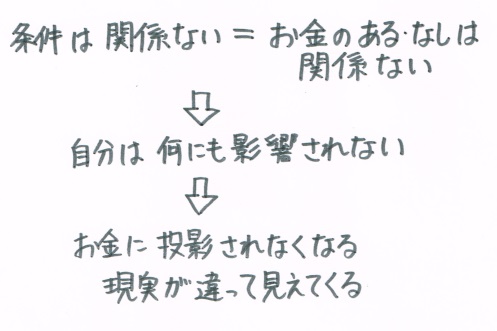 条件は 関係ない = お金のある・なしは
関係ない
⇩
自分は 何にも影響されない
⇩
お金に 投影されなくなる
現実が違って見えてくる